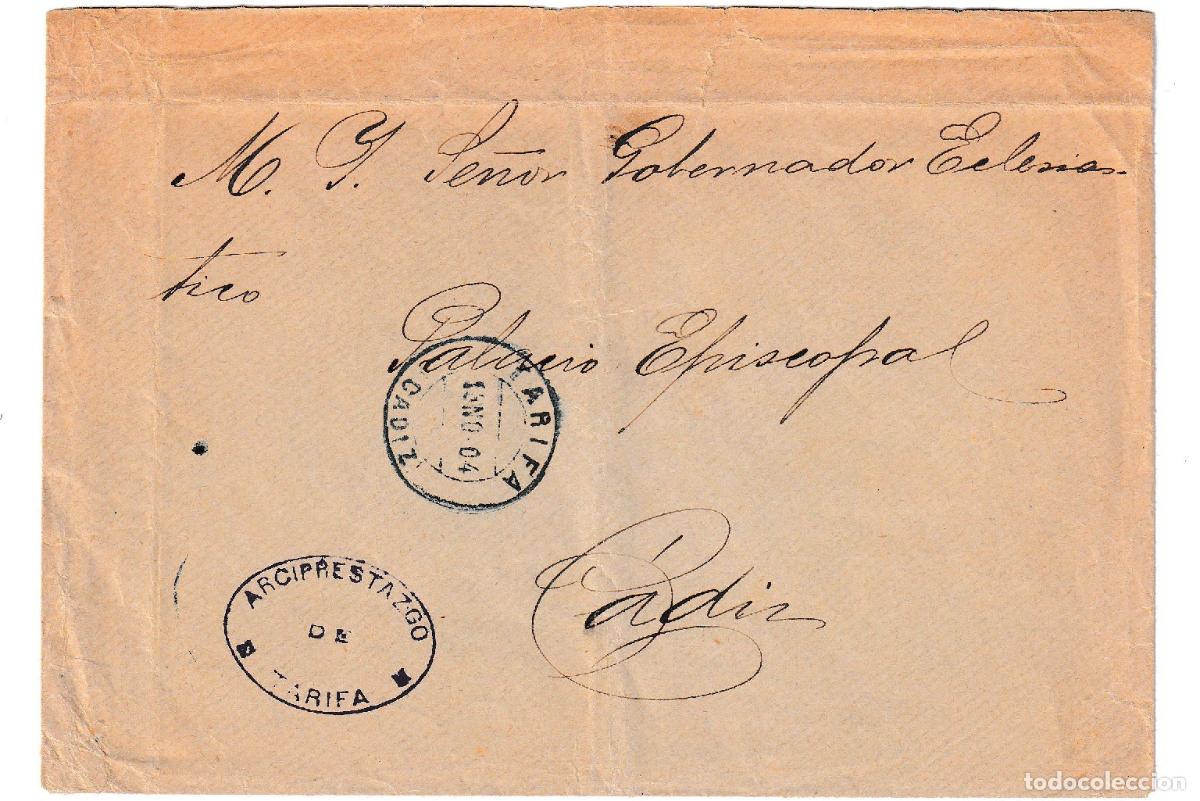 M. Y. Señor Gobernador Eclesias-
tico
Palacio Episcopal
TARIFA
13 NO. 04
CADIZ
Cádiz
ARCIPRESTAZGO
DE
TARIFA
todocoleccion